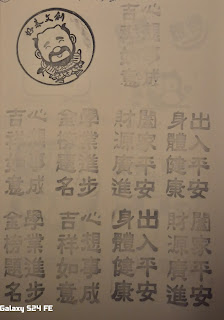 心想事成
吉祥如意
出入平安
身體健康
闔家平安
財源廣進
學業進步
金榜題名
心想事成
吉祥如意
闔家平安
財源廣進
出入平安
身體健康
心想事成
吉祥如意
學業進步
金榜題名
Galaxy S24 FE